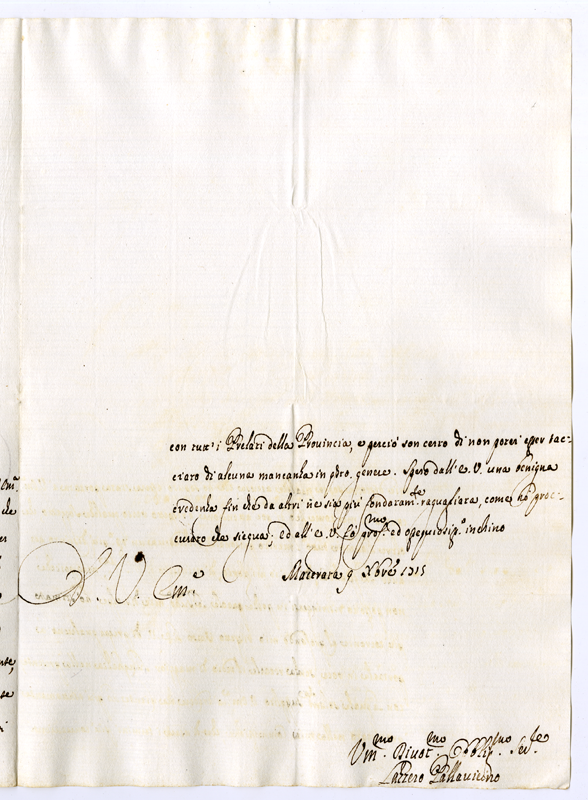 con tutt'i Prelati della Provincia, e perciò son certo di non poter esser tac-
ciato di alcuna mancanza in pdto. genere. Spero dall'E. V. una benigna
credenza fin che da altri ne sia più fondatam.te ragguagliata, come ho proc-
curato che siegua; ed all'E. V. fò prof.mo ed inchino
Macerata 9 Xbre 1715
D. V. Em.e
Vm.mo Divot.mo Obblig.mo Ser.e
Lazzero Pallavicino